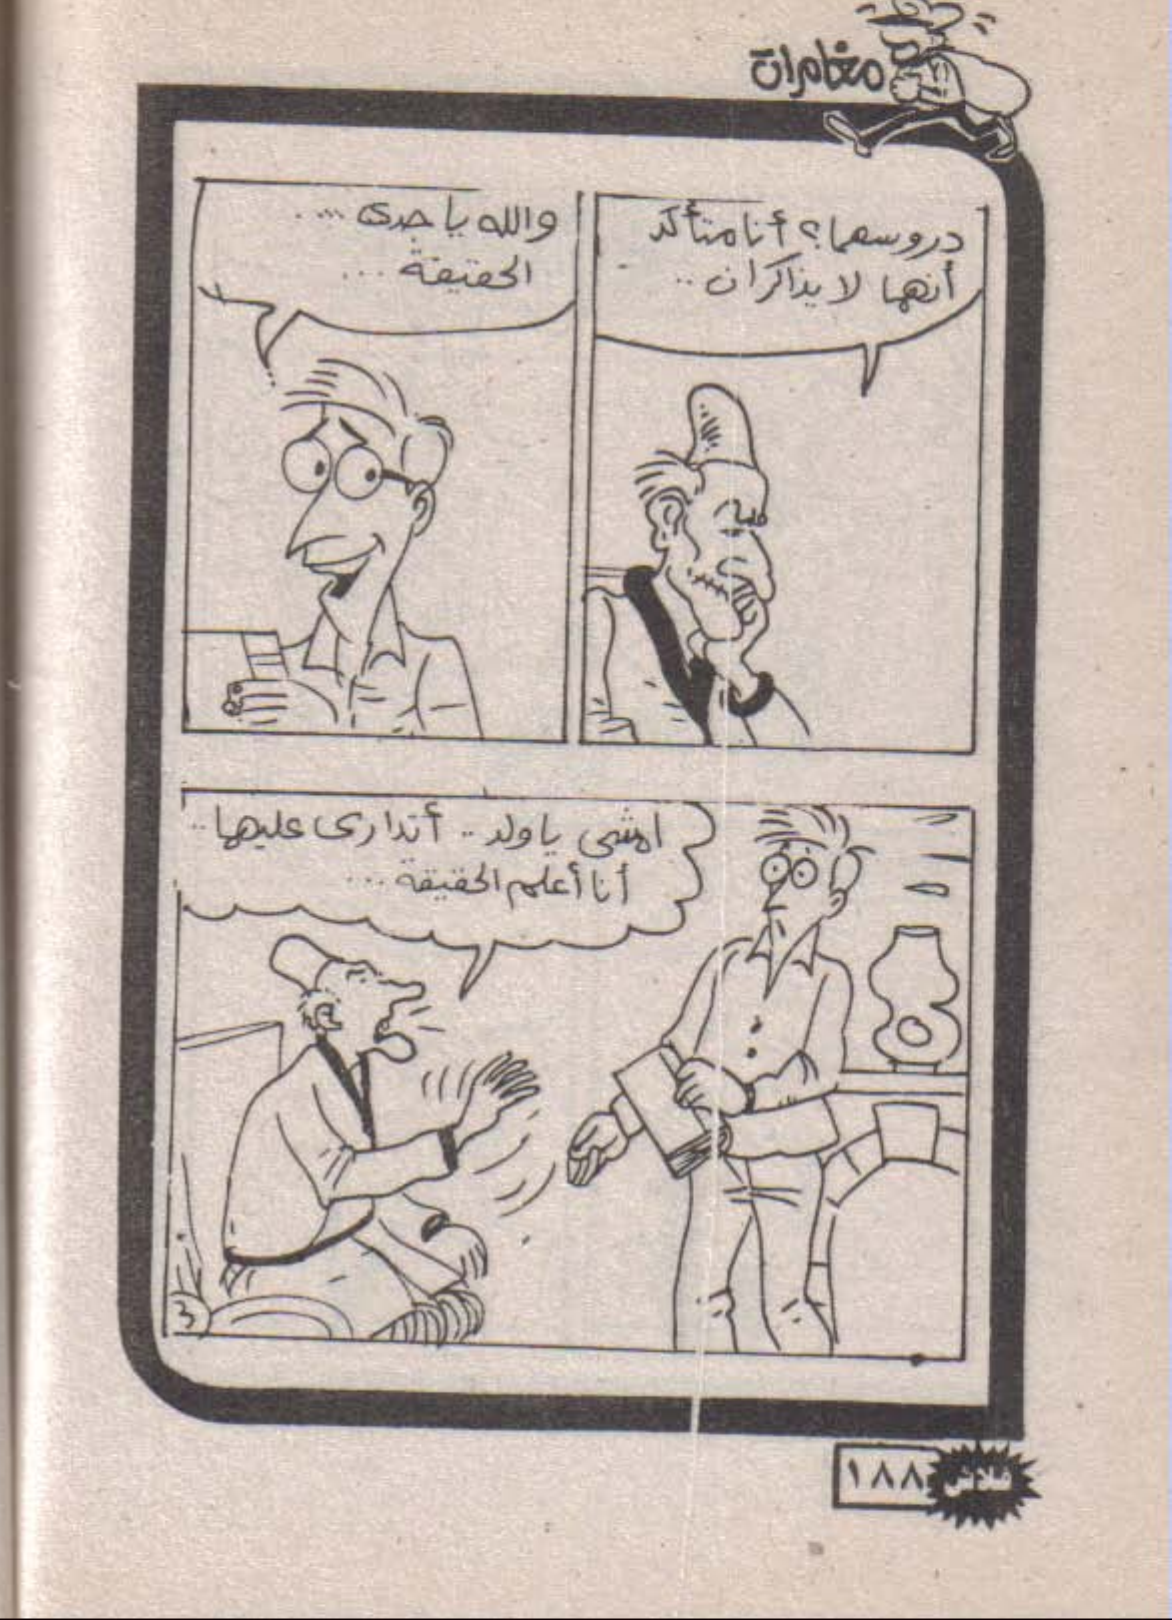 مغامرات
دروسهما؟ أنا متأكد
أنهما لا يذاكران ..
والله يا جدى ....
الحقيقة ...
امشى يا ولد .. أتدارى عليهما ..
أنا أعلم الحقيقة ...
فلاش
١٨٨